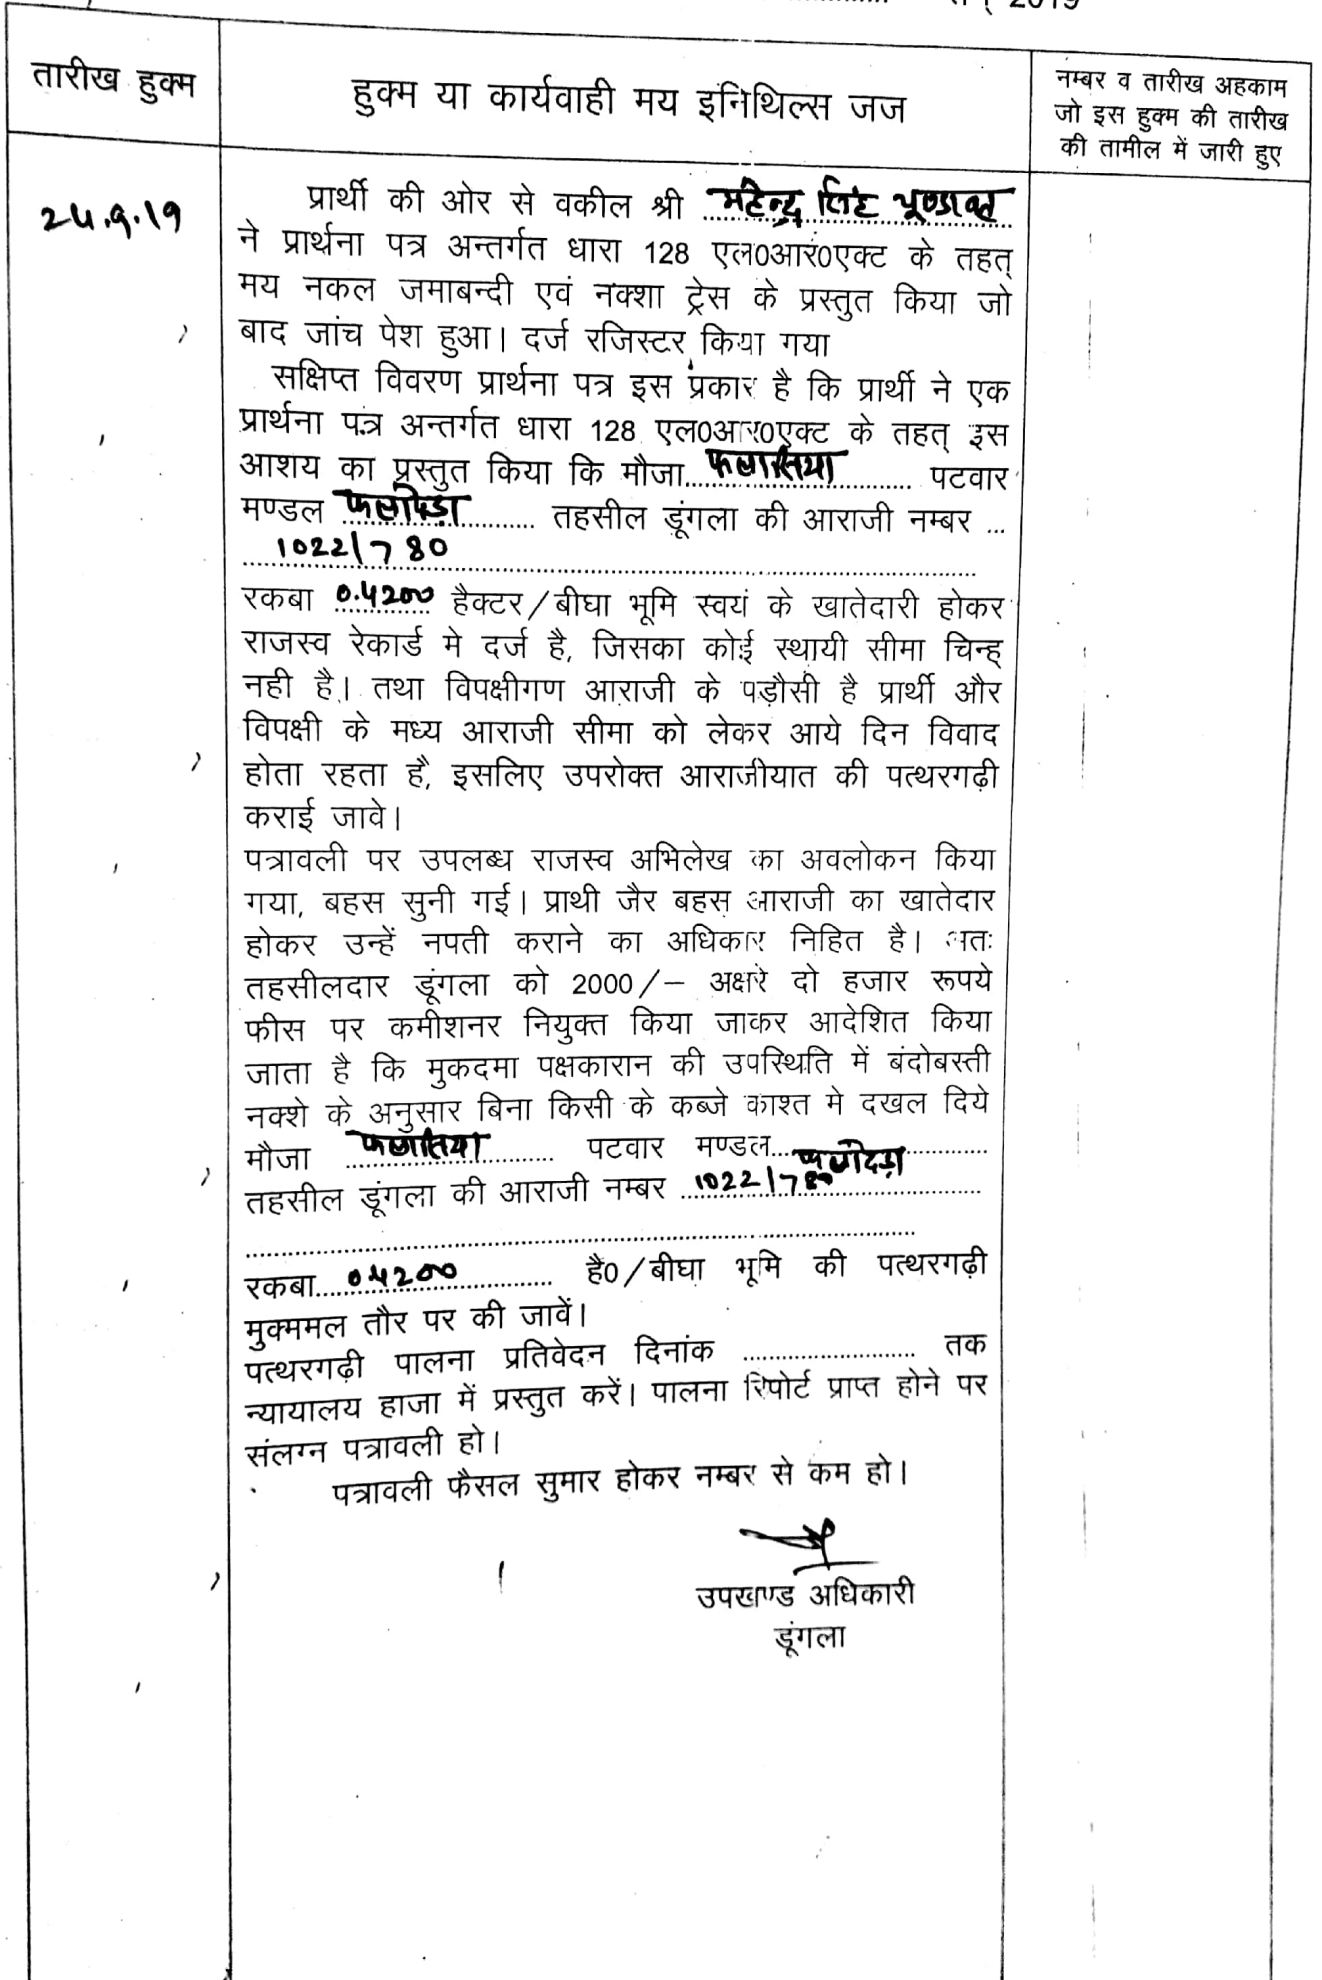 सन् 2019
तारीख हुक्म
हुक्म या कार्यवाही मय इनिथिल्स जज
नम्बर व तारीख अहकाम
जो इस हुक्म की तारीख
की तामील में जारी हुए
प्रार्थी की ओर से वकील श्री महेन्द्र सिंह
24.9.19
ने प्रार्थना पत्र अन्तर्गत धारा 128 एल0आर0एक्ट के तहत्
मय नकल जमाबन्दी एवं नक्शा ट्रेस के प्रस्तुत किया जो
बाद जांच पेश हुआ। दर्ज रजिस्टर किया गया
सक्षिप्त विवरण प्रार्थना पत्र इस प्रकार है कि प्रार्थी ने एक
प्रार्थना पत्र अन्तर्गत धारा 128 एल0आर0एक्ट के तहत् इस
आशय का प्रस्तुत किया कि मौजा.................. पटवार
मण्डल .................. तहसील डूंगला की आराजी नम्बर ...
1022/780
रकबा 0.4200 हैक्टर/बीघा भूमि स्वयं के खातेदारी होकर
राजस्व रेकार्ड मे दर्ज है, जिसका कोई स्थायी सीमा चिन्ह्
नही है। तथा विपक्षीगण आराजी के पड़ौसी है प्रार्थी और
विपक्षी के मध्य आराजी सीमा को लेकर आये दिन विवाद
होता रहता है, इसलिए उपरोक्त आराजीयात की पत्थरगढ़ी
कराई जावे।
पत्रावली पर उपलब्ध राजस्व अभिलेख का अवलोकन किया
गया, बहस सुनी गई। प्राथी जैर बहस आराजी का खातेदार
होकर उन्हें नपती कराने का अधिकार निहित है। अतः
तहसीलदार डूंगला को 2000/– अक्षरे दो हजार रूपये
फीस पर कमीशनर नियुक्त किया जाकर आदेशित किया
जाता है कि मुकदमा पक्षकारान की उपस्थिति में बंदोबस्ती
नक्शे के अनुसार बिना किसी के कब्जे काश्त मे दखल दिये
मौजा .................. पटवार मण्डल..................
तहसील डूंगला की आराजी नम्बर 1022/780
रकबा 0.4200 है0/बीघा भूमि की पत्थरगढ़ी
मुक्ममल तौर पर की जावें।
पत्थरगढ़ी पालना प्रतिवेदन दिनांक .................. तक
न्यायालय हाजा में प्रस्तुत करें। पालना रिपोर्ट प्राप्त होने पर
संलग्न पत्रावली हो।
पत्रावली फैसल सुमार होकर नम्बर से कम हो।
उपखण्ड अधिकारी
डूंगला